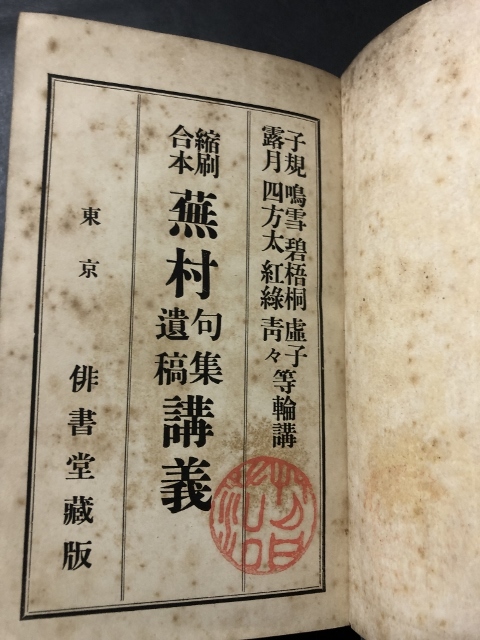 子規 鳴雪 碧梧桐 虚子
露月 四方太 紅緑 青々
等輪講
縮刷
合本
蕪村
句集
遺稿
講義
東京
俳書堂藏版